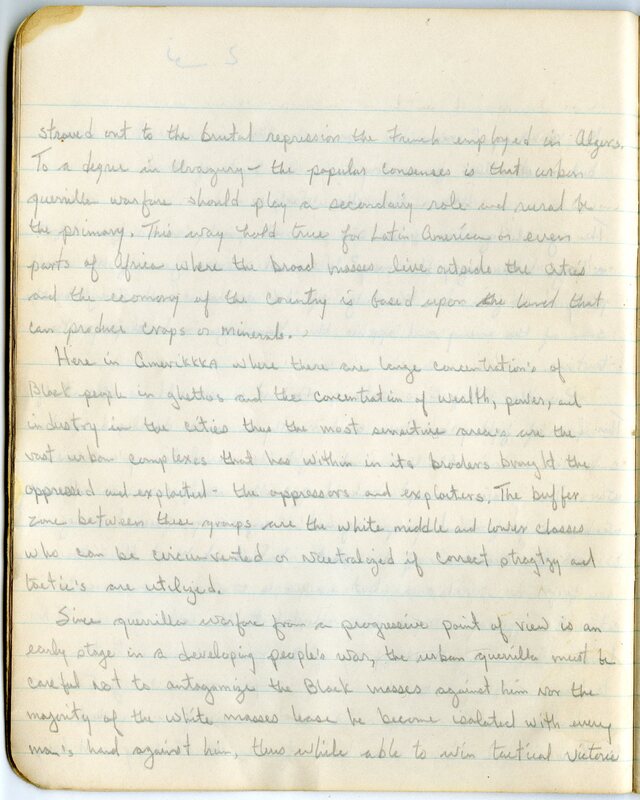 straved out to the brutal repression the French employed in Algers.
To a degree in Uragury - the popular consenses is that urban
guerrilla warfare should play a secondary role and rural be
the primary. This way hold true for Latin America or even
parts of Africa where the broad masses live outside the cities
and the economy of the country is based upon the land that
can produce crops or minerals.
Here in AmeriKKKA where there are large concentration's of
Black people in ghettos and the concentration of wealth, power, and
industry in the cities thus the most sensitive area's are the
vast urban complexes that has within in its broders brought the
oppressed and exploited - the oppressors and exploiters. The buffer
zone between these groups are the white middle and lower classes
who can be circumvented or neutralized if correct stragtzy and
tactic's are utilized.
Since guerrilla warfare from a progressive point of view is an
early stage in a developing people's war, the urban guerilla must be
careful not to antagamize the Black masses against him nor the
majority of the white masses lease he become isolated with every
man's hand against him, thus while able to win tactical victorie